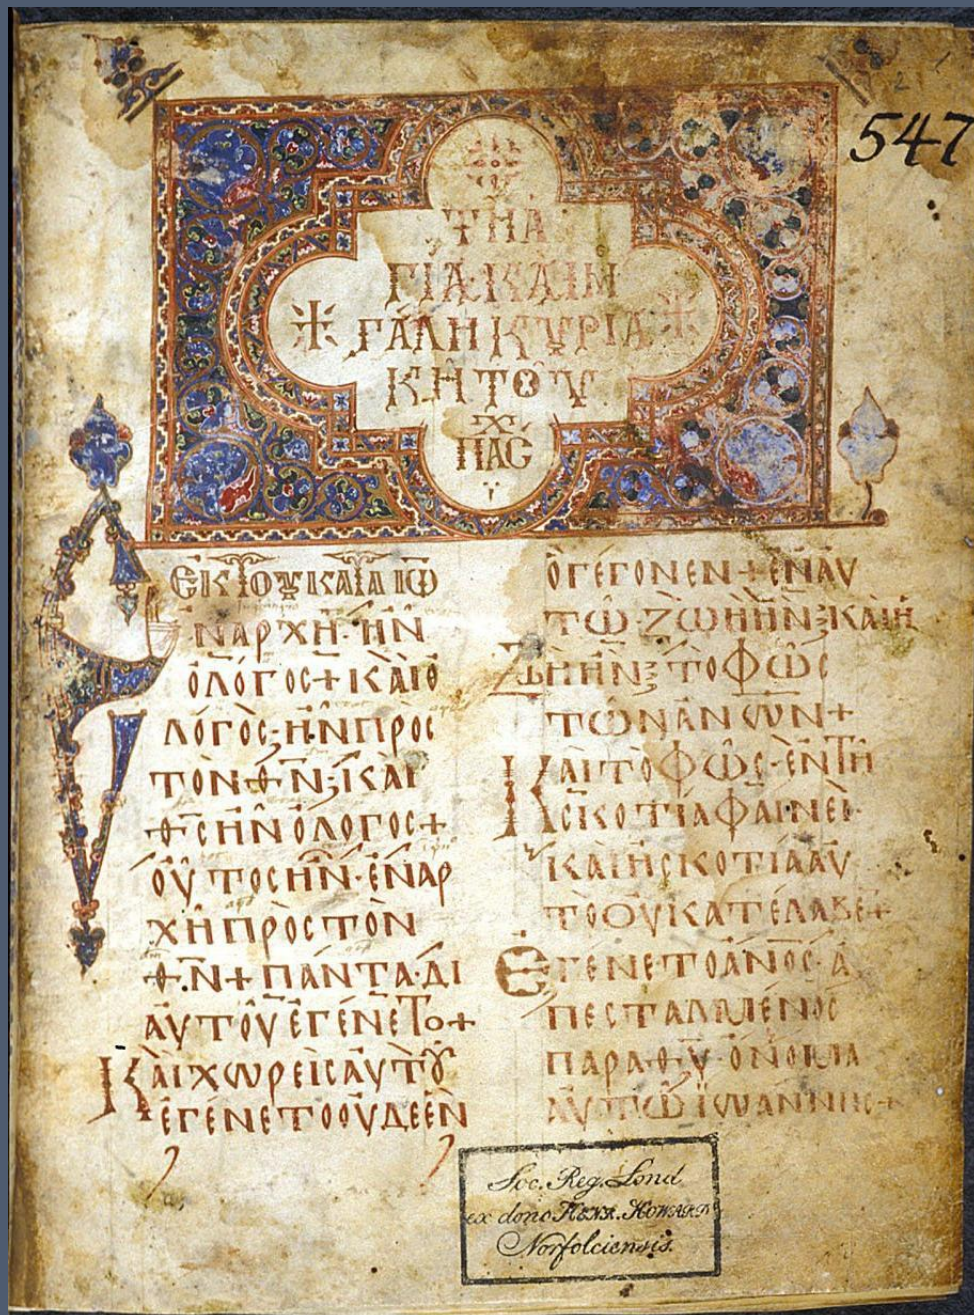 547
ΤΗ ἉΓΙΑ ΚΑΙ Μ
ΓΑΛΗ ΚΥΡΙΑ
ΚΗ ΤΟΥ
ΠΑϹ
ΕΚ ΤΟΥ ΚΑΤΑ ΙΩ
ΝΑΡΧΗ· ΗΝ
ὉΛΟΓΟϹ + ΚΑΙ Ο
ΛΟΓΟϹ· ΗΝ ΠΡΟϹ
ΤΟΝ Θ̅Ν̅· ΚΑΙ
Θ̅Ϲ̅ ΗΝ Ο ΛΟΓΟϹ +
ΟΥΤΟϹ ΗΝ· ΕΝ ΑΡ
ΧΗ ΠΡΟϹ ΤΟΝ
Θ̅Ν̅ + ΠΑΝΤΑ· ΔΙ
ΑΥΤΟΥ ΕΓΕΝΕΤΟ +
ΚΑΙ ΧΩΡΕΙϹ ΑΥΤΟΥ
ΕΓΕΝΕΤΟ ΟΥΔΕ ΕΝ
Ο ΓΕΓΟΝΕΝ + ΕΝ ΑΥ
ΤΩ· ΖΩΗ ΗΝ· ΚΑΙ Η
ΖΩΗ ΗΝ· ΤΟ ΦΩϹ
ΤΩΝ ΑΝ̅Ω̅Ν +
ΚΑΙ ΤΟ ΦΩϹ· ΕΝ ΤΗ
ϹΚΟΤΙΑ ΦΑΙΝΕΙ·
ΚΑΙ Η ϹΚΟΤΙΑ ΑΥ
ΤΟ ΟΥ ΚΑΤΕΛΑΒΕ +
ΕΓΕΝΕΤΟ ΑΝΟϹ· Α
ΠΕϹΤΑΛΜΕΝΟϹ
ΠΑΡΑ Θ̅Υ̅· ΟΝΟΜΑ
ΑΥΤΩ ΙΩΑΝΝΗϹ +
Soc. Reg. Lond
ex dono HENR. HOWARD
Norfolciensis.